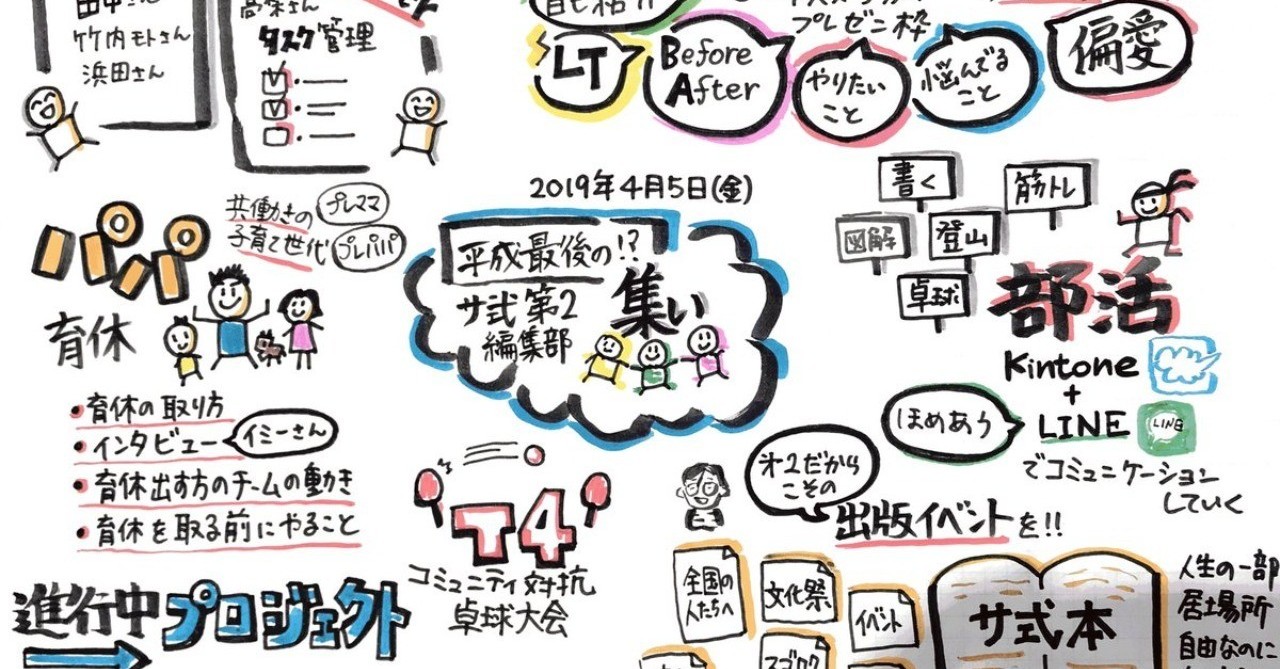 竹内モトさん
浜田さん
タスク管理
プレゼン枠
LT
Before
After
やりたい
こと
悩んでる
こと
偏愛
2019年4月5日(金)
平成最後の!?
サ式 第2
編集部
集い
共働きの
子育て世代
プレママ
プレパパ
パパ
育休
・育休の取り方
・インタビュー
イミーさん
・育休出す方のチームの動き
・育休を取る前にやること
進行中
プロジェクト
T4
コミュニティ対抗
卓球大会
書く
筋トレ
図解
登山
卓球
部活
Kintone
+
LINE
LINE
でコミュニケーション
していく
ほめあう
才2だから
こその
出版イベントを!!
全国の
人たちへ
文化祭
イベント
スゴロク
サ式本
人生の一部
居場所
自由なのに